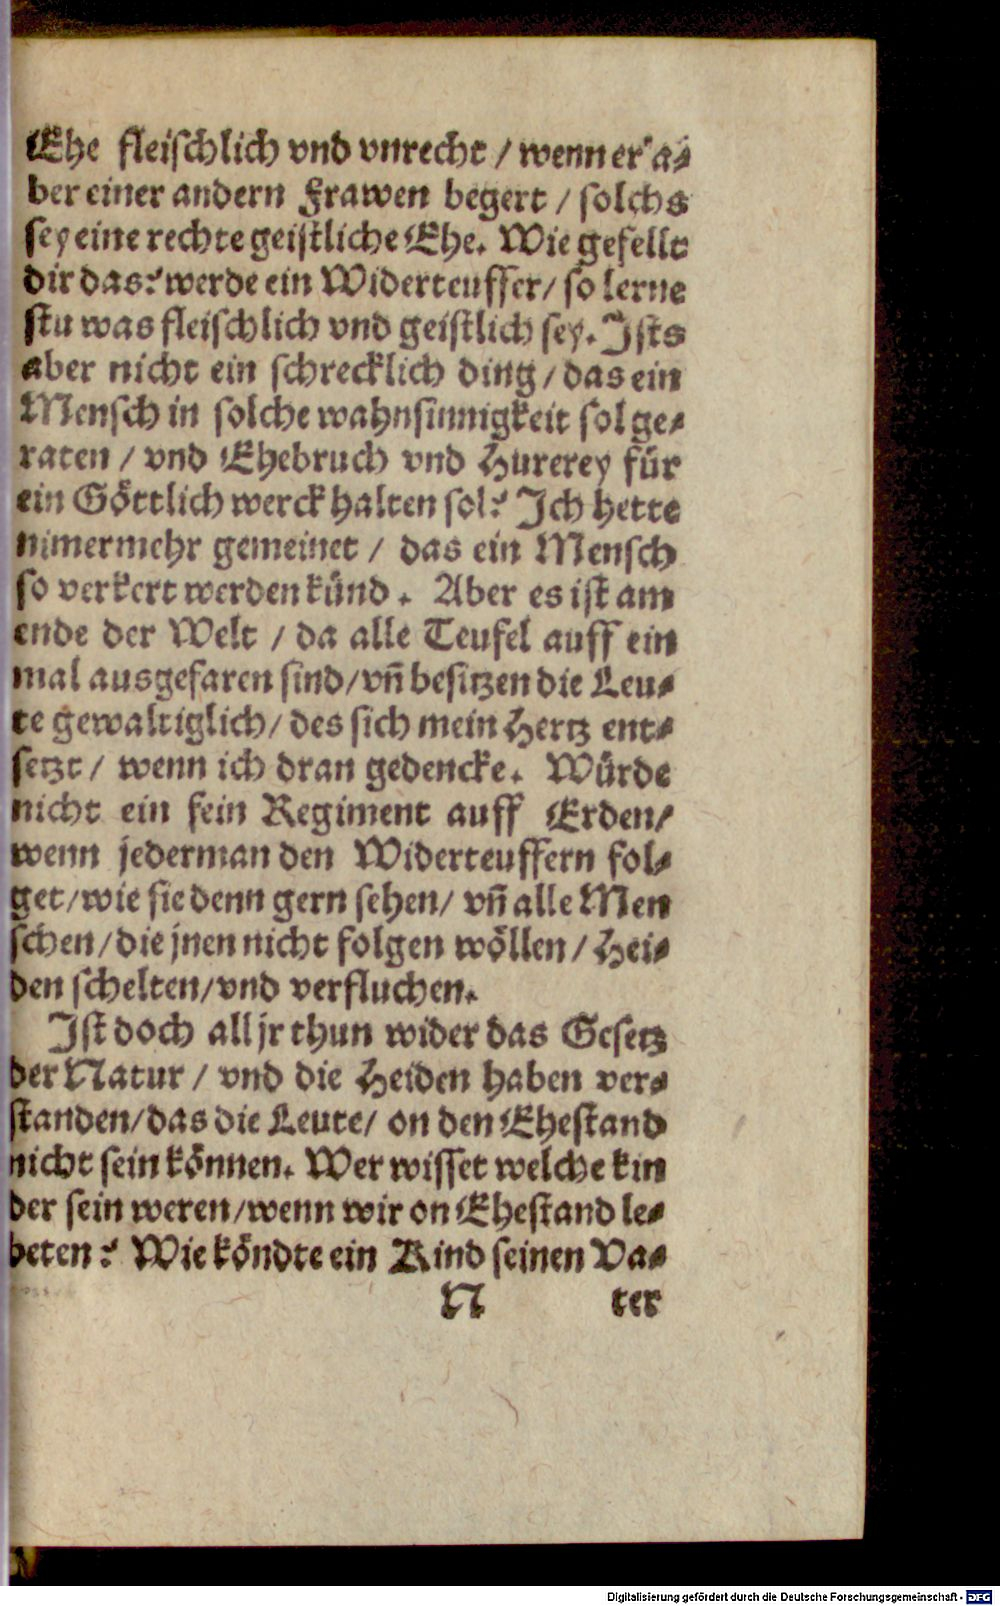 Ehe fleischlich vnd vnrecht / wenn er a⸗
ber einer andern Frawen begert / solchs
sey eine rechte geistliche Ehe. Wie gefellt
dir das? werde ein Widerteuffer / so lerne
stu was fleischlich vnd geistlich sey. Ists
aber nicht ein schrecklich ding / das ein
Mensch in solche wahnsinnigkeit sol ge⸗
raten / vnd Ehebruch vnd Hurerey für
ein Göttlich werck halten sol? Ich hette
nimermehr gemeinet / das ein Mensch
so verkert werden künd. Aber es ist am
ende der Welt / da alle Teufel auff ein
mal ausgefaren sind / vñ besitzen die Leu⸗
te gewaltiglich / des sich mein Hertz ent⸗
setzt / wenn ich dran gedencke. Würde
nicht ein fein Regiment auff Erden /
wenn jederman den Widerteuffern fol⸗
get / wie sie denn gern sehen / vñ alle Men
schen / die jnen nicht folgen wöllen / Hei⸗
den schelten / vnd verfluchen.
Ist doch all jr thun wider das Gesetz
der Natur / vnd die Heiden haben ver⸗
standen / das die Leute / on den Ehestand
nicht sein können. Wer wisset welche kin
der sein weren / wenn wir on Ehestand le⸗
beten? Wie köndte ein Kind seinen Va⸗
N ter
Digitalisierung gefördert durch die Deutsche Forschungsgemeinschaft - DFG